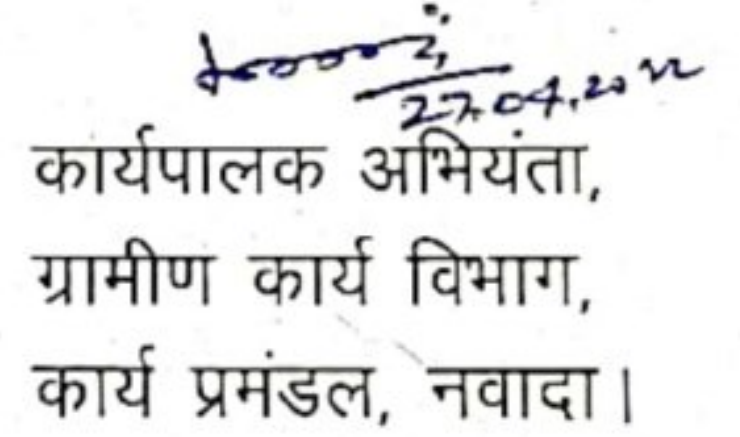 27.04.2022
कार्यपालक अभियंता,
ग्रामीण कार्य विभाग,
कार्य प्रमंडल, नवादा।